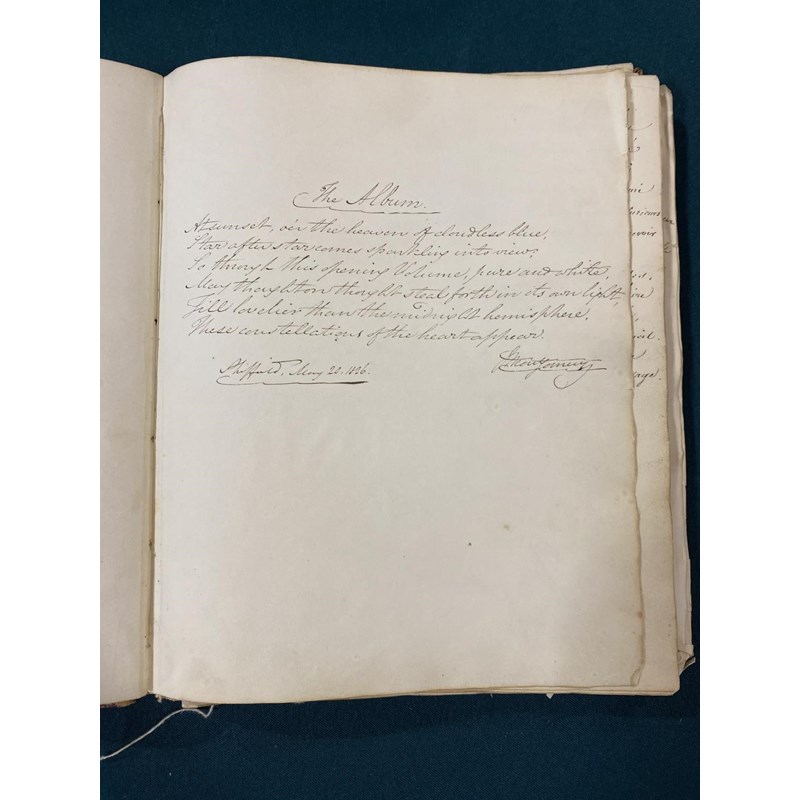 The Album.
At sunset, o'er the heaven of cloudless blue,
Star after star comes sparkling into view;
So through this opening Volume, pure and white,
May thought on thought steal forth in its own light,
Till lovelier than the midnight hemisphere,
These constellations of the heart appear.
Sheffield, May 20. 1826.
J. Montgomery